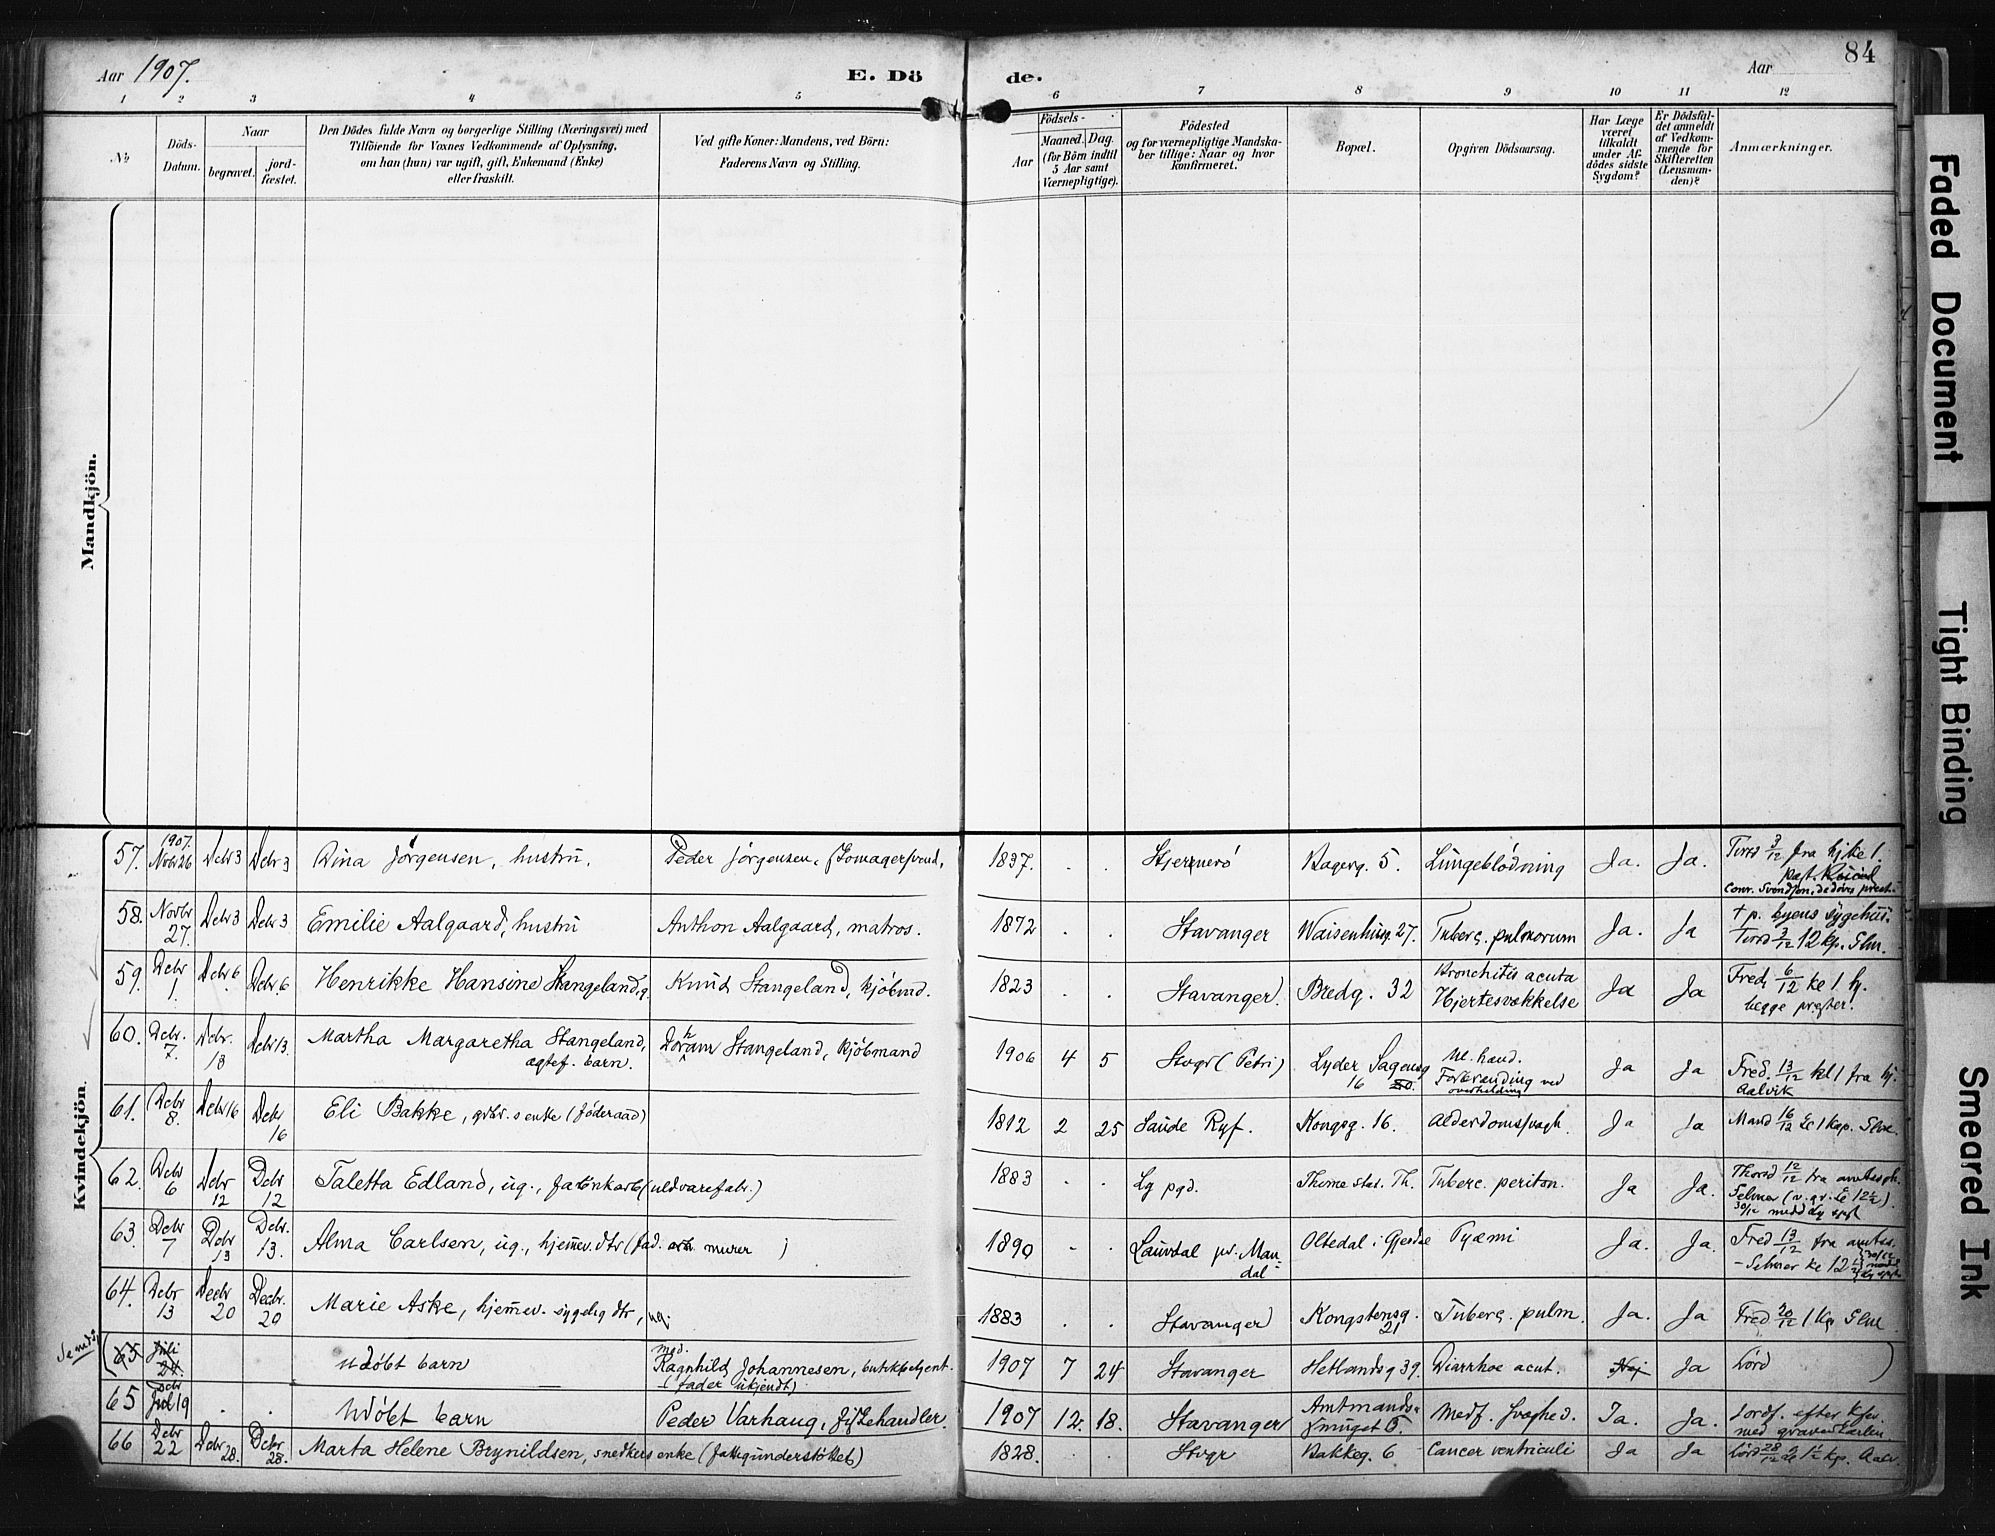 Aar 1907.
E. Dö de.
Aar
84
1 2 3 4 5 6 7 8 9 10 11 12
No
Döds-Datum.
Naar
begravet.
jord-fæstet.
Den Dödes fulde Navn og borgerlige Stilling (Næringsvei) med
Tilföiende for Voxnes Vedkommende af Oplysning,
om han (hun) var ugift, gift, Enkemand (Enke)
eller fraskilt.
Ved gifte Koner: Mandens, ved Börn:
Faderens Navn og Stilling.
Födsels-
Aar
Maaned. Dag.
(for Börn indtil
5 Aar samt
Værnepligtige).
Födested
og for værnepligtige Mandska-
ber tillige: Naar og hvor
konfirmeret.
Bopæl.
Opgiven Dödsaarsag.
Har Læge
været
tilkaldt
under Af-
dödes sidste
Sygdom?
Er Dödsfal-
det anmeldt
af Vedkom-
mende for
Skifteretten
(Lensman-
den)?
Anmærkninger.
Mandkjön.
Kvindekjön.
57. 1907. Novbr 26 Dcbr 3 Dcbr 3 Dina Jørgensen, hustru. Peder Jørgensen, 1837. Stjernerö 5. Lungeblödning Ja. Ja.
58. Novbr 27. Dcbr 3 Dcbr 3 Emilie Aalgaard, hustru Anthon Aalgaard, matros. 1872 Stavanger Waisenhusg. 27. Tuberc. pulmorum Ja. Ja † p. byens sygehus.
59. Dcbr 1. Dcbr 6 Dcbr 6 Henrikke Hansine Stangeland, Knud Stangeland, kjöbmd. 1823 Stavanger. Bredg. 32 Bronchitis acuta
Hjertesvækkelse Ja Ja Fred. 6/12 kl 1
begge prester.
60. Dcbr. 7. Dcbr. 13 Dcbr 13. Martha Margaretha Stangeland,
ægtef. barn. Stangeland, kjöbmand 1906 4 5 Stvgr (Petri) Lyder Sagensg
16 Forbrænding ved
overhelding Ja Ja Fred. 13/12 kl 1 fra hj.
Aalvik
61. Dcbr 8. Dcbr 16 Dcbr 16 Eli Bakke, grbr.s enke (föderaad) 1812 2 25 Saude Ryf. Kongsg. 16. Alderdomssvagh. Ja Ja Mand 16/12
62. Dcbr 6 Dcbr 12 Dcbr 12 Taletta Edland, ug., (uldvarefabr.) 1883 Lg pgd. Tuberc. periton. Ja Ja. 12/12 fra amtssgh.
63. Dcbr 7 Dcbr 13 Dcbr. 13. Alma Carlsen, ug., hjemmev. dtr (fad. murer) 1890 Lauvdal pr. Man-
dal Oltedal i Gjesdal Pyæmi Ja. Ja. Fred 13/12 fra amtss.
64. Dcbr 13 Decbr 20 Decbr. 20 Marie Aske, hjemmev. sygelig dtr, ug. 1883 Stavanger Kongstensg.
21 Tuberc. pulm. Ja. Ja Fred 20/12
(65 Juli 24. udöbt barn mod.
Ragnhild Johannesen,
(fader ukjendt) 1907 7 24 Stavanger Hetlandsg 39. Diarrhoe acut. Nej Ja Lörd )
65 Dcbr 19 Udöbt barn Peder Varhaug, 1907 12 18. Stavanger Amtmands-
smuget 5. Medf. svaghed. Ja. Ja. Jordf. efter
66 Dcbr 22 Dcbr 28. Dcbr 28. Marta Helene Brynildsen, snedkers enke (fattigunderstöttet) 1828. Stvgr Bakkeg. 6 Cancer ventriculi Ja Ja Lörd 28/12
Faded Document
Tight Binding
Smeared Ink